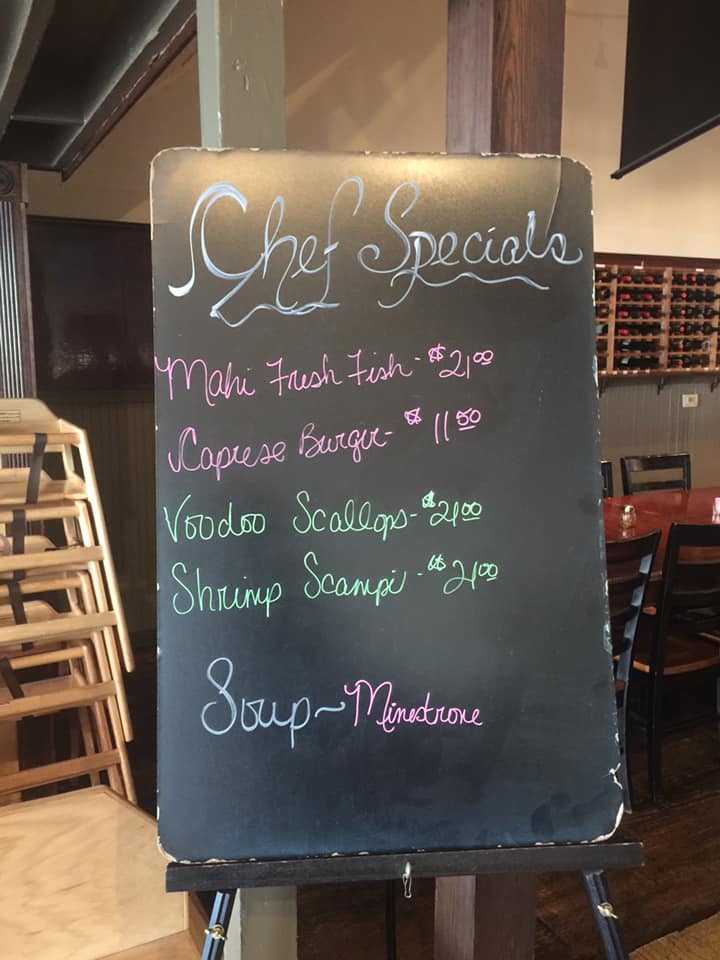 Chef Specials
Mahi Fresh Fish - $21.00
Caprese Burger - $11.50
Voodoo Scallops - $21.00
Shrimp Scampi - $21.00
Soup ~ Minestrone